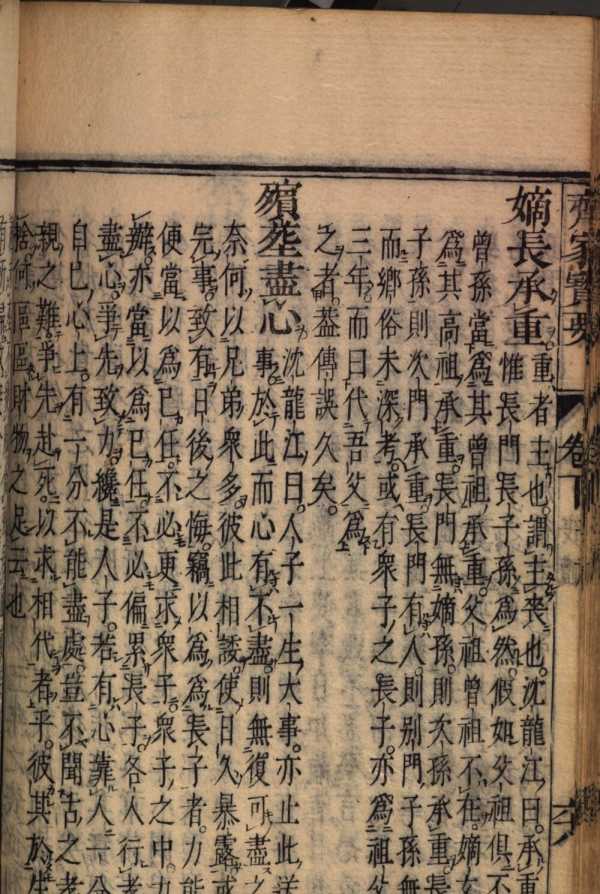 齊家寶要 卷下
嫡長承重 重者主也謂主喪也沈龍江曰承重
惟長門長子孫爲然假如父祖俱不
曾孫當爲其曾祖承重父祖曾祖不在嫡
爲其高祖承重長門無嫡孫則次孫承重長
子孫則次門承重長門有人則别門子孫無
而鄉俗未深考或有衆子之長子亦爲祖父
三年而曰代吾父爲
之者葢傳誤久矣
殯塟盡心 沈龍江曰人子一生大事亦止此送
事於此而心有不盡則無復可盡之
奈何以兄弟衆多彼此相諉使日久暴露或
完事致有日後之悔竊以爲爲長子者力能
便當以爲已任不必更求衆子衆子之中力
辦亦當以爲已任不必偏累長子各人行者
盡心爭先致力纔是人子若有心靠人一分
自已心上有一分不能盡處豈不聞古之者
親之難爭先赴死以求相代者乎彼其於生
捨何區區財物之足云也